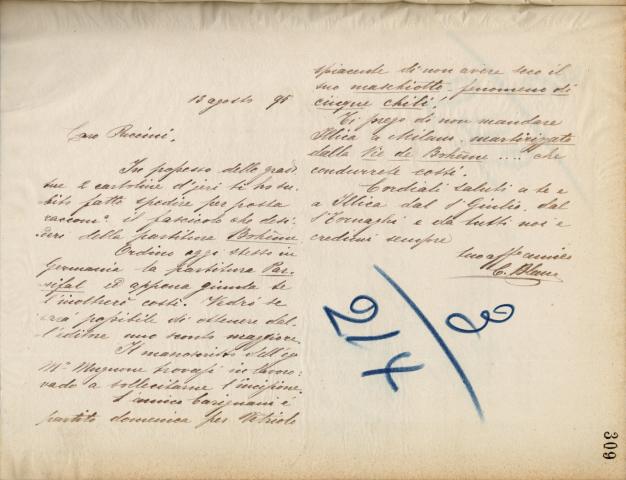 13 agosto 95
Caro Puccini,
In possesso delle gradi-
te 2 cartoline d'ieri ti ho su-
bito fatto spedire per posta
raccom.ª il fascicolo che desi-
deri della partitura Bohême
Ordino oggi stesso in
Germania la partitura Par-
sifal ed appena giunta te
l'inoltrerò costì. Vedrò se
sarà possibile di ottenere dal-
l'editore uno sconto maggiore.
Il manoscritto dell'
Mº Mugnone trovasi in lavoro:
vado a sollecitarne l'incisione.
L'amico Carignani è
partito domenica per Vetriolo
spiacente di non avere seco il
suo maschiotto - fenomeno di
cinque chili!
Ti prego di non mandare
Illica a Milano martirizzato
dalla Vie de Bohème .... che
condurrete costì.
Cordiali saluti a te e
a Illica dal S. Giulio, dal
S. Tornaghi e da tutti noi e
credimi sempre
tuo aff. amico
C. Blanc
3/214
309